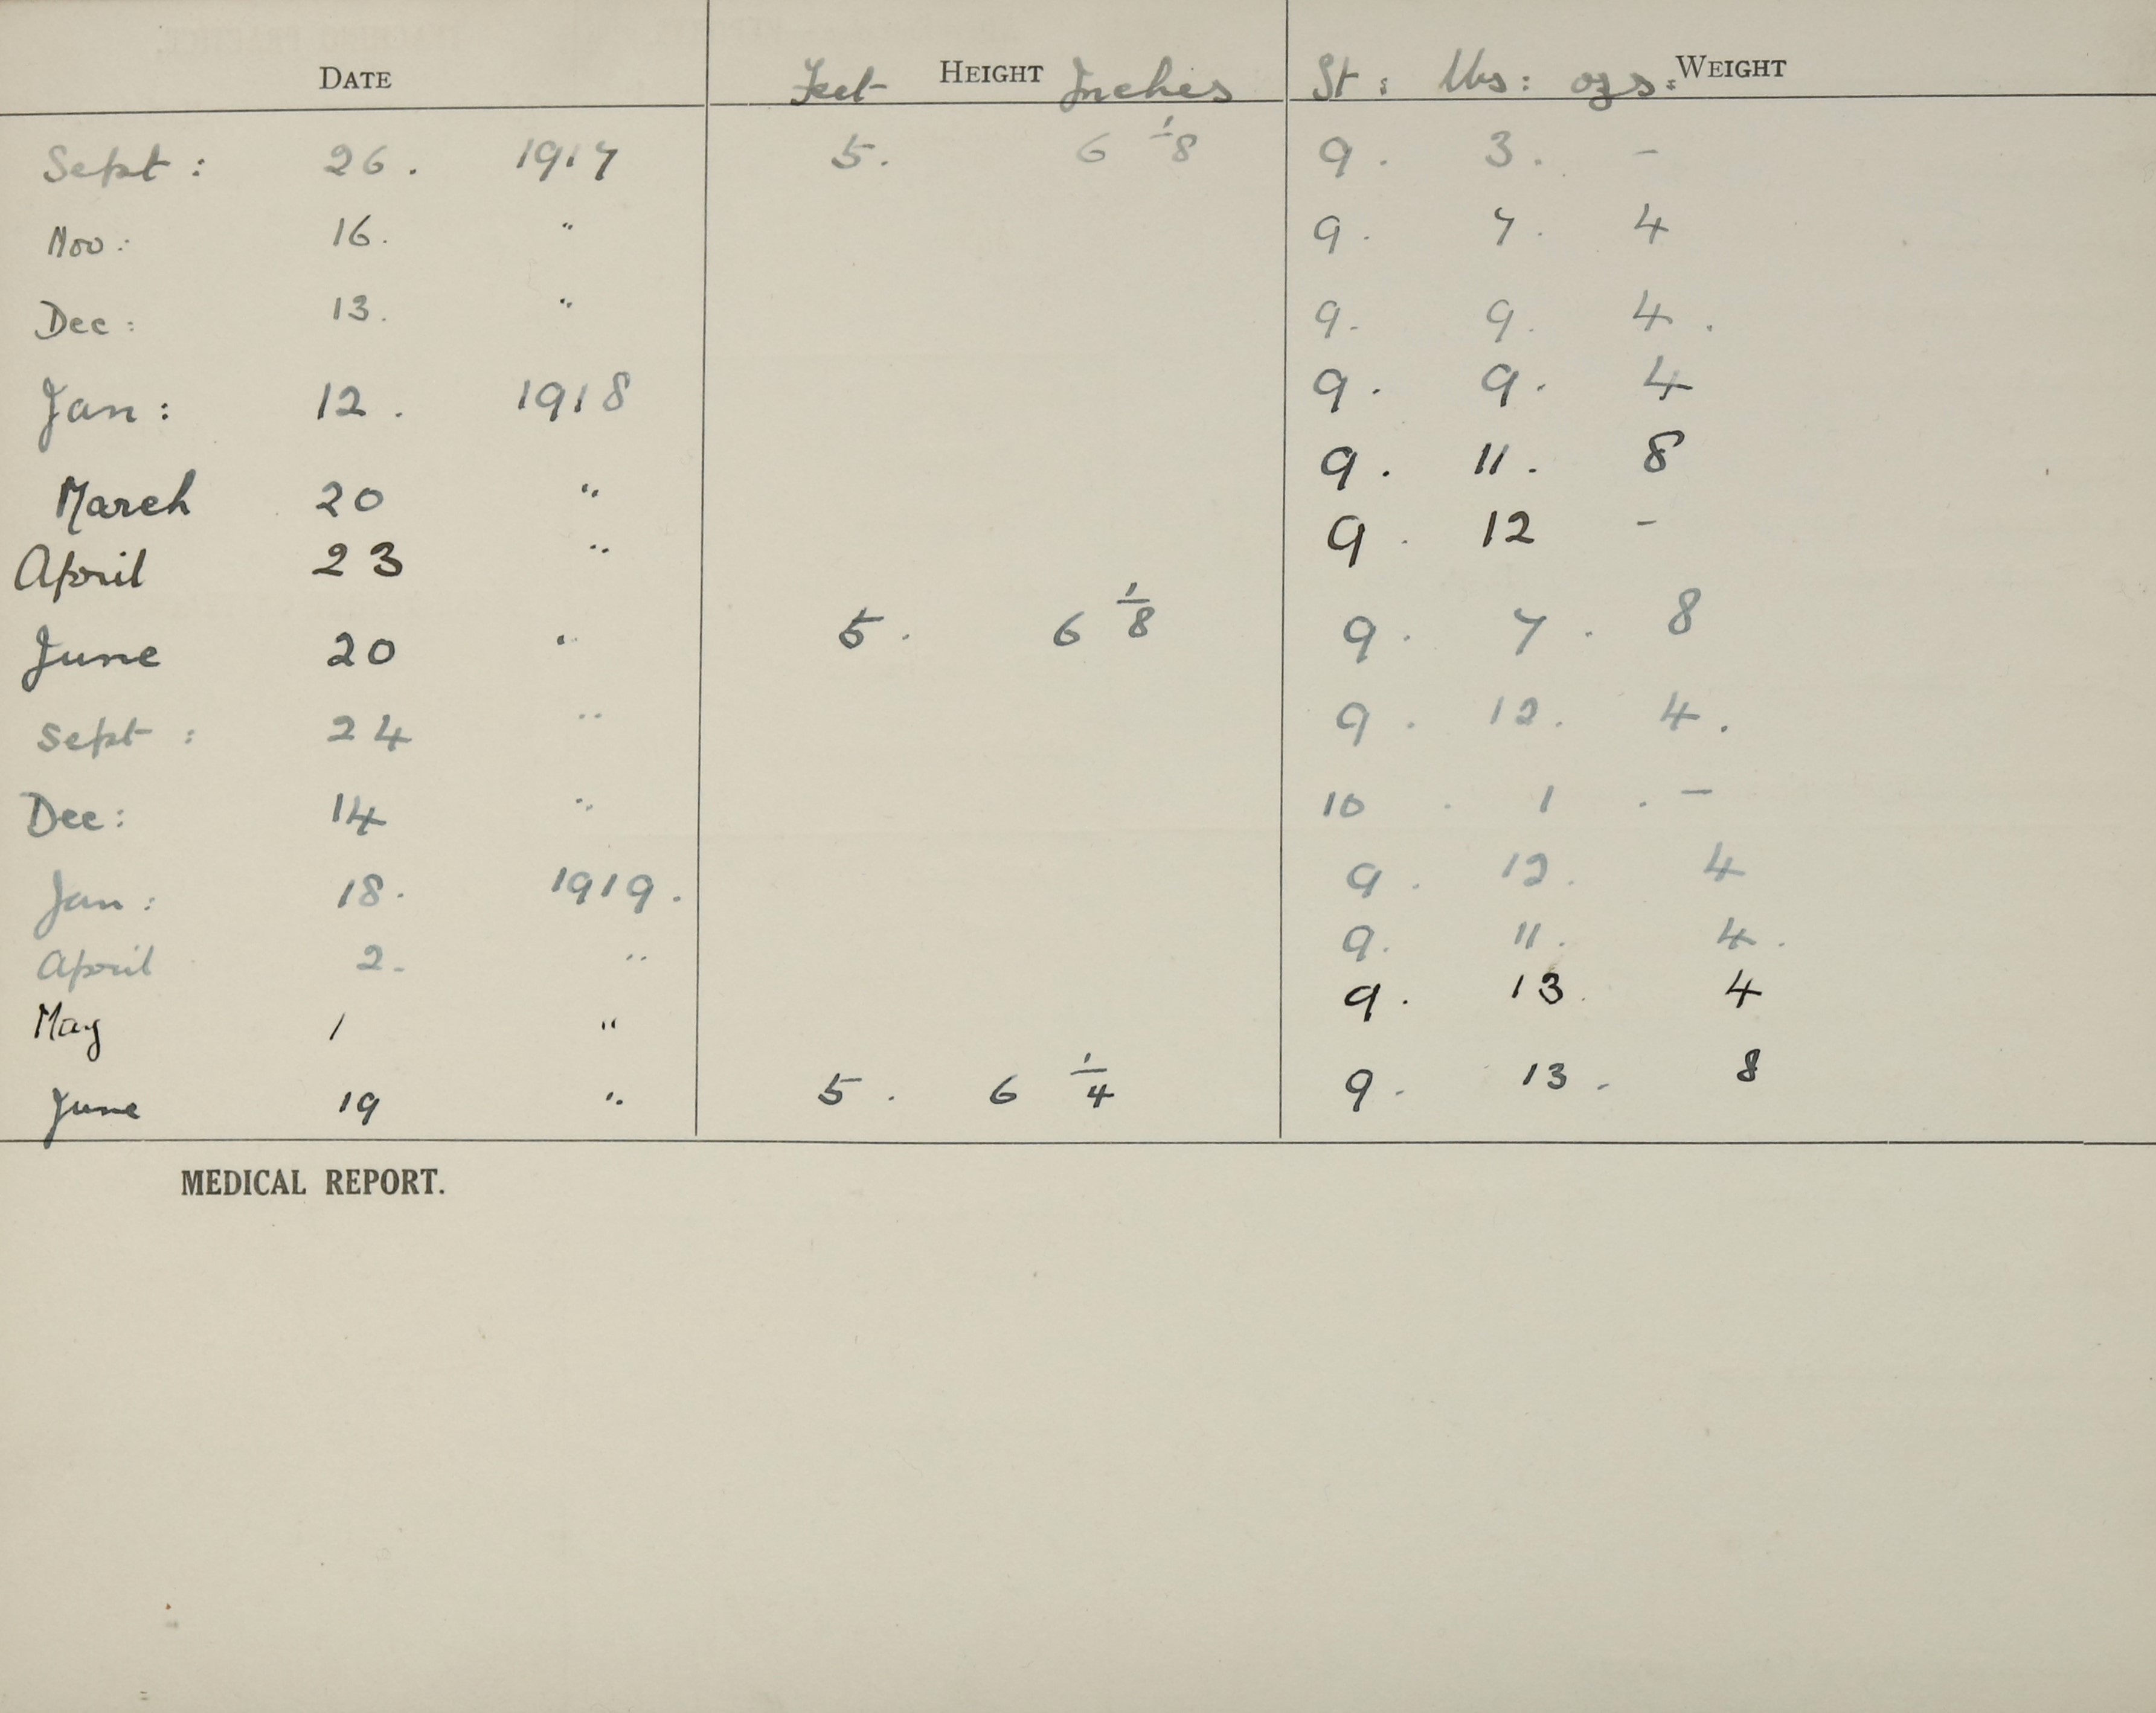 DATE Feet HEIGHT Inches St: lbs: ozs: WEIGHT
Sept: 26. 1917 5. 6 1/8 9. 3. -
Nov: 16. " 9. 7. 4
Dec: 13. " 9. 9. 4.
Jan: 12. 1918 9. 9. 4
March 20 " 9. 11. 8
April 23 " 9. 12 -
June 20 " 5. 6 1/8 9. 7. 8
Sept: 24 " 9. 12. 4.
Dec: 14 " 10. 1. -
Jan: 18. 1919. 9. 12. 4
April 2. " 9. 11. 4.
May 1 " 9. 13. 4
June 19 " 5. 6 1/4 9. 13. 8
MEDICAL REPORT.